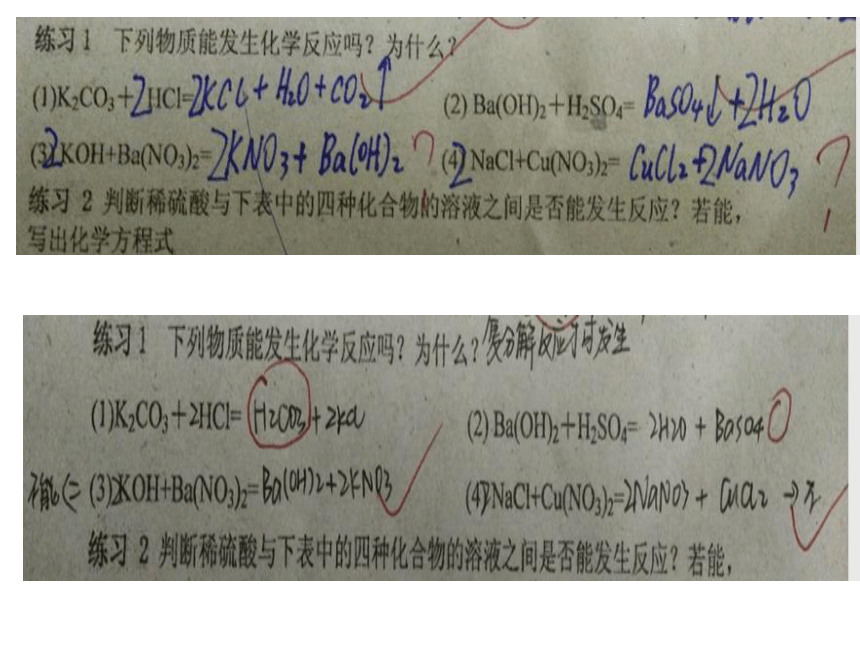 练习1 下列物质能发生化学反应吗？为什么？
(1)K₂CO₃+2HCl=2KCl+H₂O+CO₂↑ (2) Ba(OH)₂+H₂SO₄= BaSO₄↓+2H₂O
(3)2KOH+Ba(NO₃)₂=2KNO₃+Ba(OH)₂ ? (4)2NaCl+Cu(NO₃)₂= CuCl₂+2NaNO₃ ?
练习 2 判断稀硫酸与下表中的四种化合物的溶液之间是否能发生反应？若能，
写出化学方程式
练习1 下列物质能发生化学反应吗？为什么？复分解反应可发生
(1)K₂CO₃+2HCl= H₂CO₃+2KCl (2) Ba(OH)₂+H₂SO₄= 2H₂O + BaSO₄
不能 (3)2KOH+Ba(NO₃)₂=Ba(OH)₂+2KNO₃ (4)2NaCl+Cu(NO₃)₂=2NaNO₃ + CuCl₂ →不
练习 2 判断稀硫酸与下表中的四种化合物的溶液之间是否能发生反应？若能，